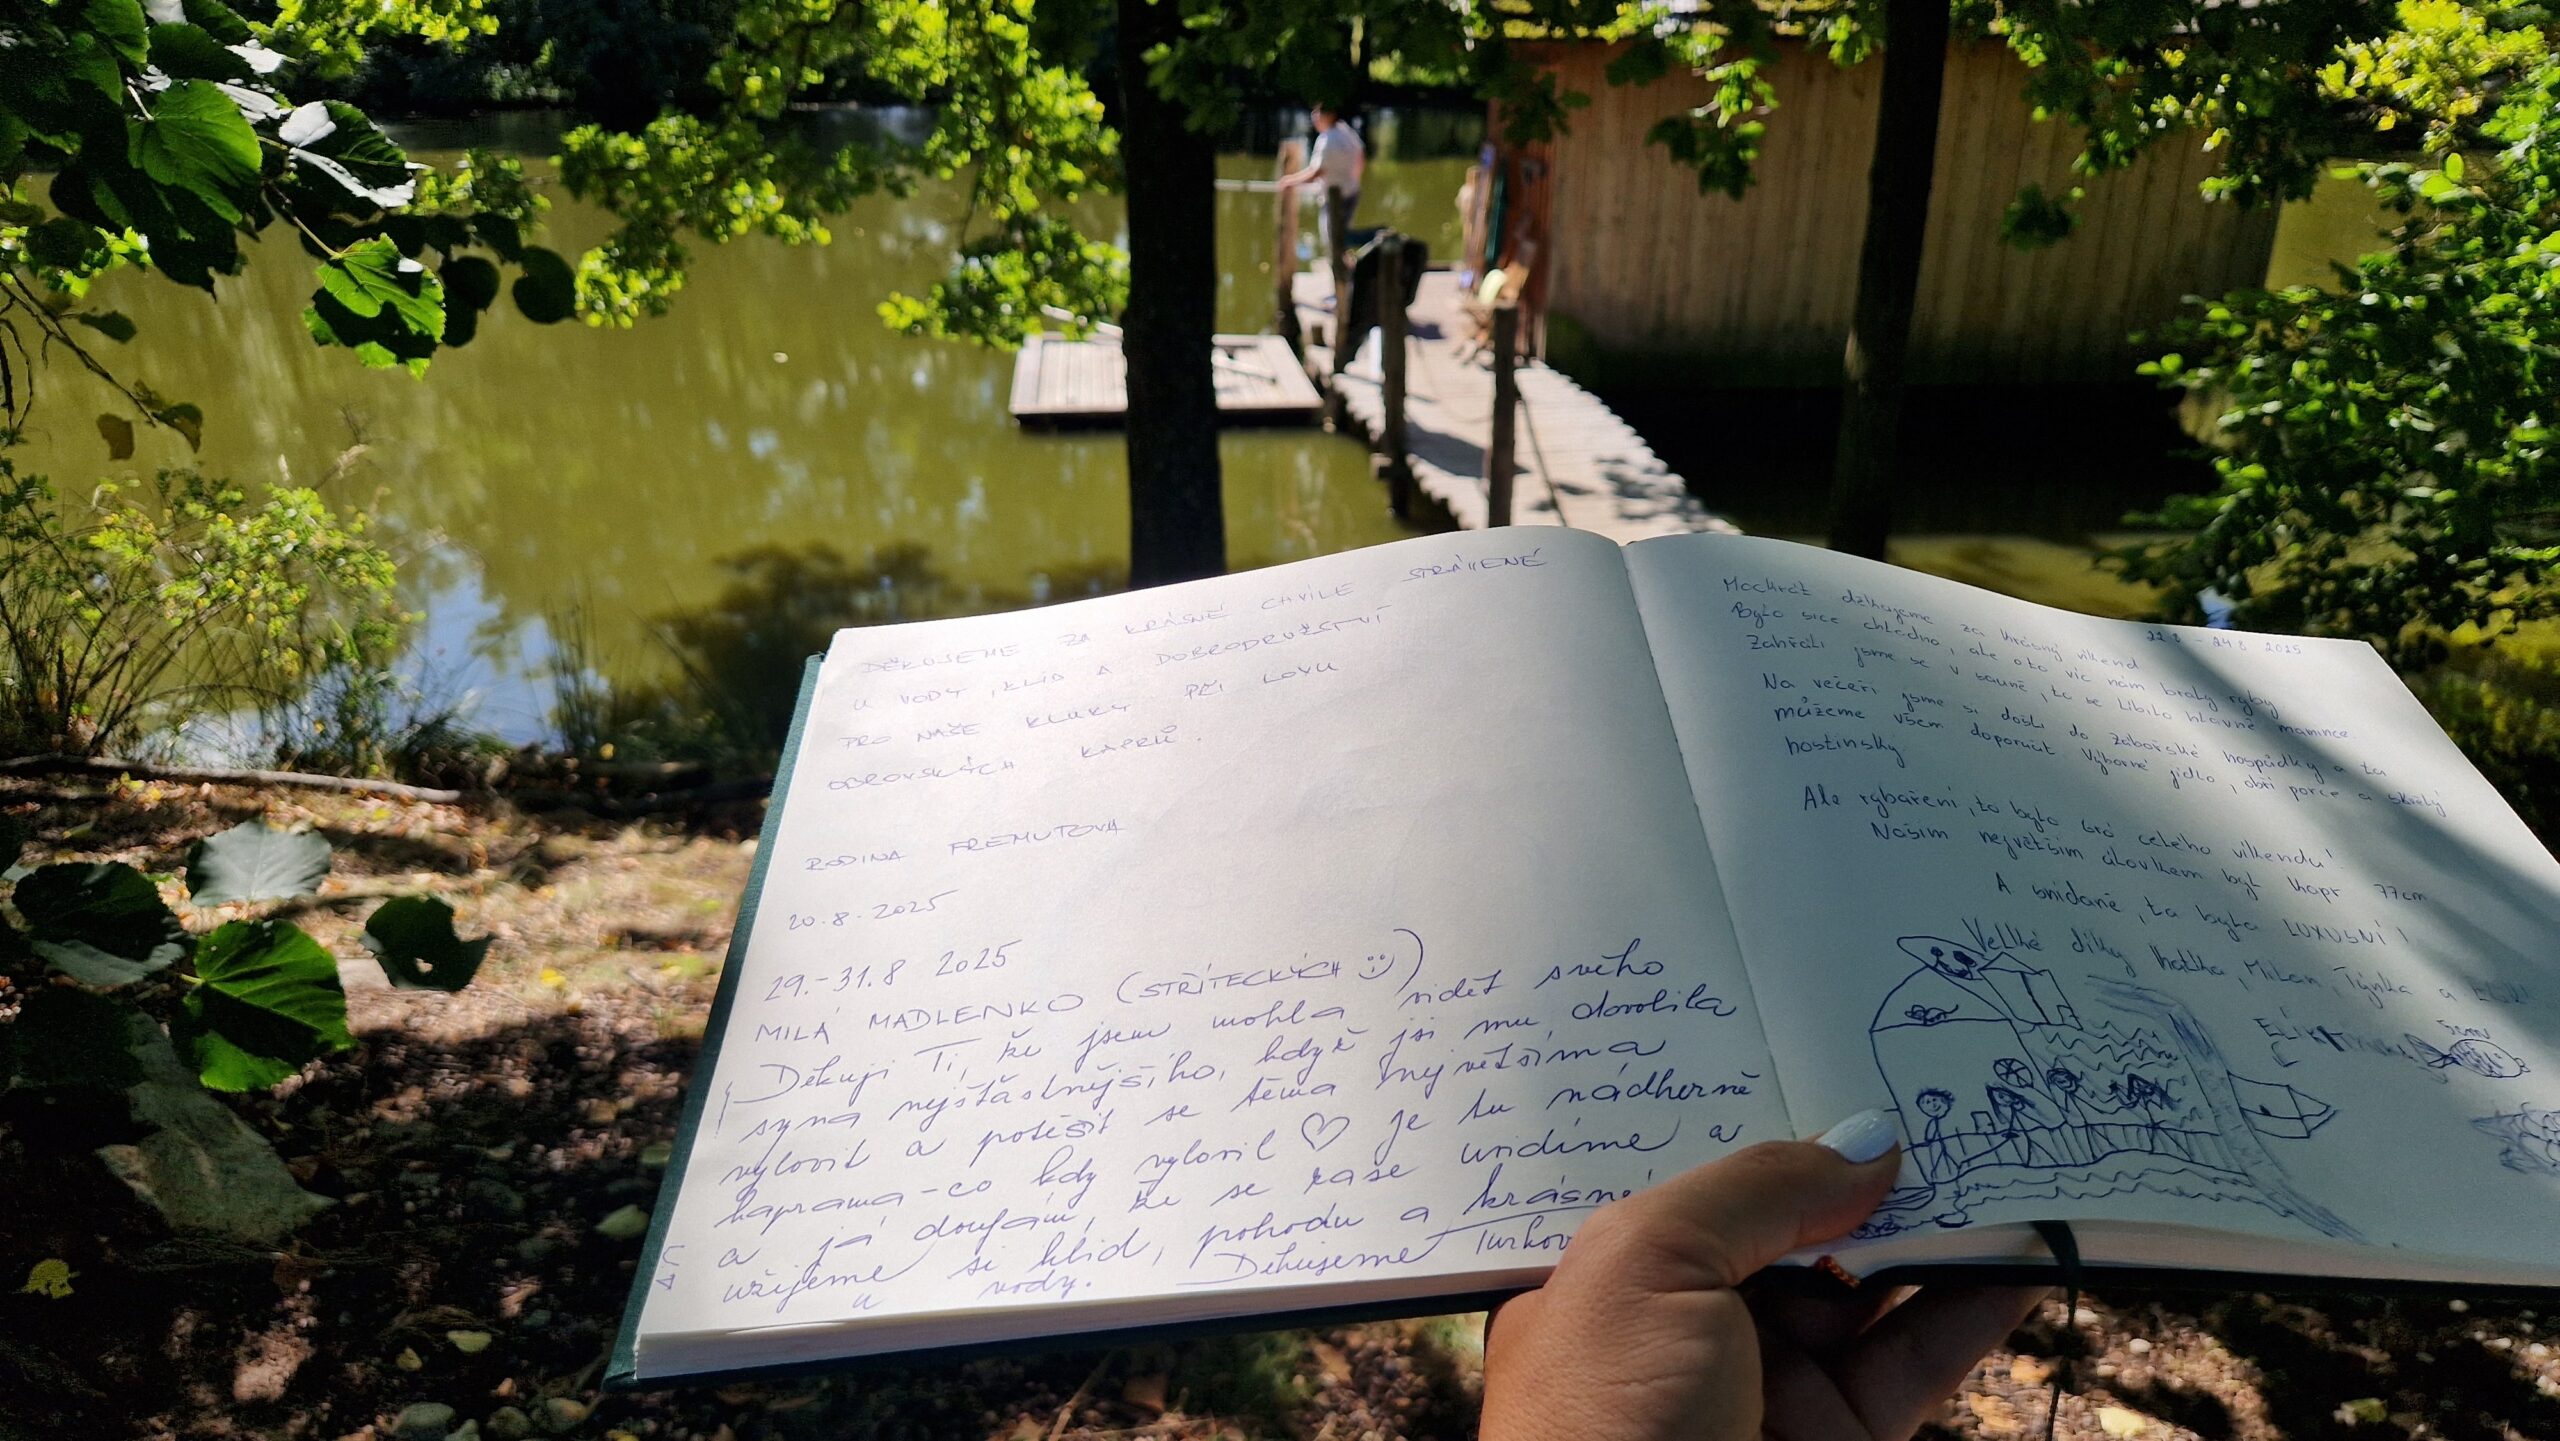 DĚKUJEME ZA KRÁSNÉ CHVÍLE STRÁVENÉ
U VODY, KLID A DOBRODRUŽSTVÍ
PRO NAŠE KLUKY PŘI LOVU
OBROVSKÝCH KAPRŮ.
RODINA FREMUTOVA
20.8.2025
29.-31.8 2025
MILÁ MADLENKO (STŘÍTECKÝCH :))
Děkuji Ti, že jsem mohla vidět svého
syna nejšťastnějšího, když jsi mu dovolila
vylovit a potěšit se těma největšíma
kaprama-co kdy vylovil ♡ je tu nádherně
a já doufám, že se zase uvidíme a
užijeme si klid, pohodu a krásné
u vody. Děkujeme
22.8 - 24.8 2025
Mockrát děkujeme za krásný víkend
Bylo sice chladno, ale oto víc nám braly ryby.
Zahřáli jsme se v sauně, to se líbilo hlavně mamince.
Na večeři jsme si došli do Záborské hospůdky a tu
můžeme všem doporučit Výborné jídlo, obří porce a skvělý
hostinský
Ale rybaření, to bylo tró celého víkendu!
Naším největším úlovkem byl kapr 77cm
A snídaně, ta byla LUXUSNÍ!
Velké díky Katka, Milan, Týnka a
5cm